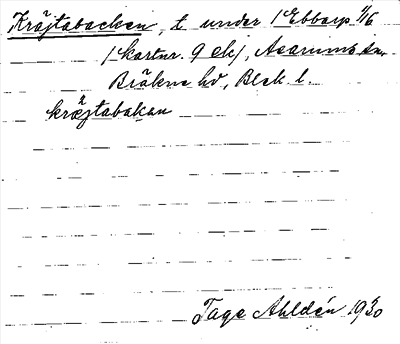 Kräjtabacken, t. under 1 Ebbarp 1/16
(kartnr. 9 ek), Asarums sn.
Bräkne hd, Blek. l.
kræjtabakan
Tage Ahldén 1930